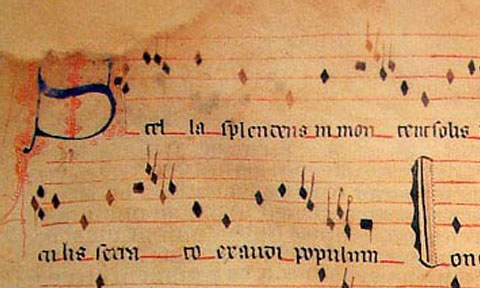 Stel la splendens in mon teut solis
culis serra to exaudi populum Con